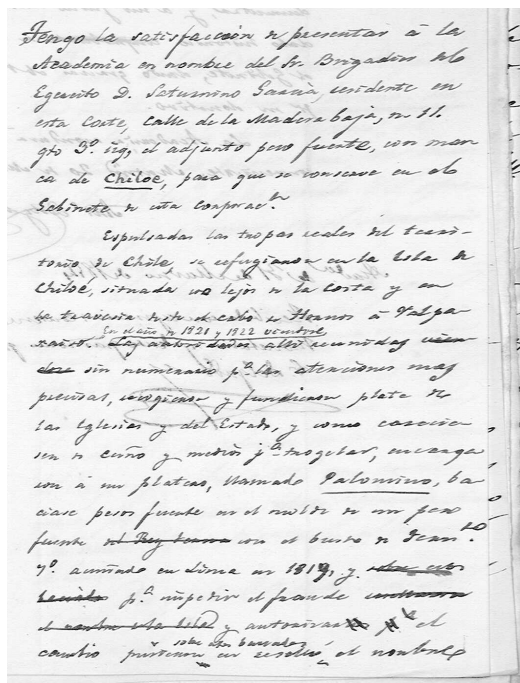 Tengo la satisfacción de presentar á la
Academia en nombre del Sr. Brigadier del
Egercito D. Saturnino García, residente en
esta Corte, calle de la Madera baja, n. 11.
qto 3º. izq, el adjunto peso fuerte, con mar-
ca de Chiloe, para que se conserve en el
Gabinete de esta corporacn.
Espulsadas las tropas reales del terri-
torio de Chile, se refugiaron en la Isla de
Chiloé, situada no lejos de la costa y en
la travesia desde el cabo de Hornos á Valpa-
En el año de 1821 y 1822 viendose
raiso. Las autoridades alli reunidas
sin numerario pa. las atenciones mas
precisas, recogieron y fundieron plata de
las Iglesias y del Estado, y como carecie-
sen de cuño y medios pa. troquelar, encarga-
ron á un platero, llamado Palomino, va-
ciase pesos fuertes en el molde de un peso
fuerte del Rey con el busto de Fern.do
7º. acuñado en Lima en 1819, y
pa. impedir el fraude
y autorizar el
sobre
cambio pusieron el nombre